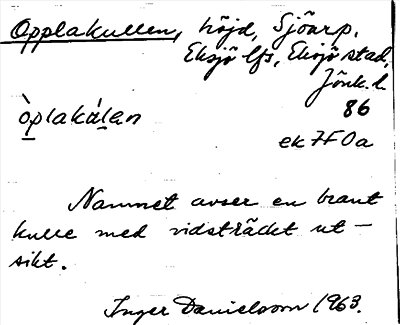 Opplakullen, höjd, Sjöarp,
Eksjö lfs, Eksjö stad,
Jönk. l.
86
òplakálan
ek 7F0a
Namnet avser en brant
kulle med vidsträckt ut-
sikt.
Inger Danielsson 1963.